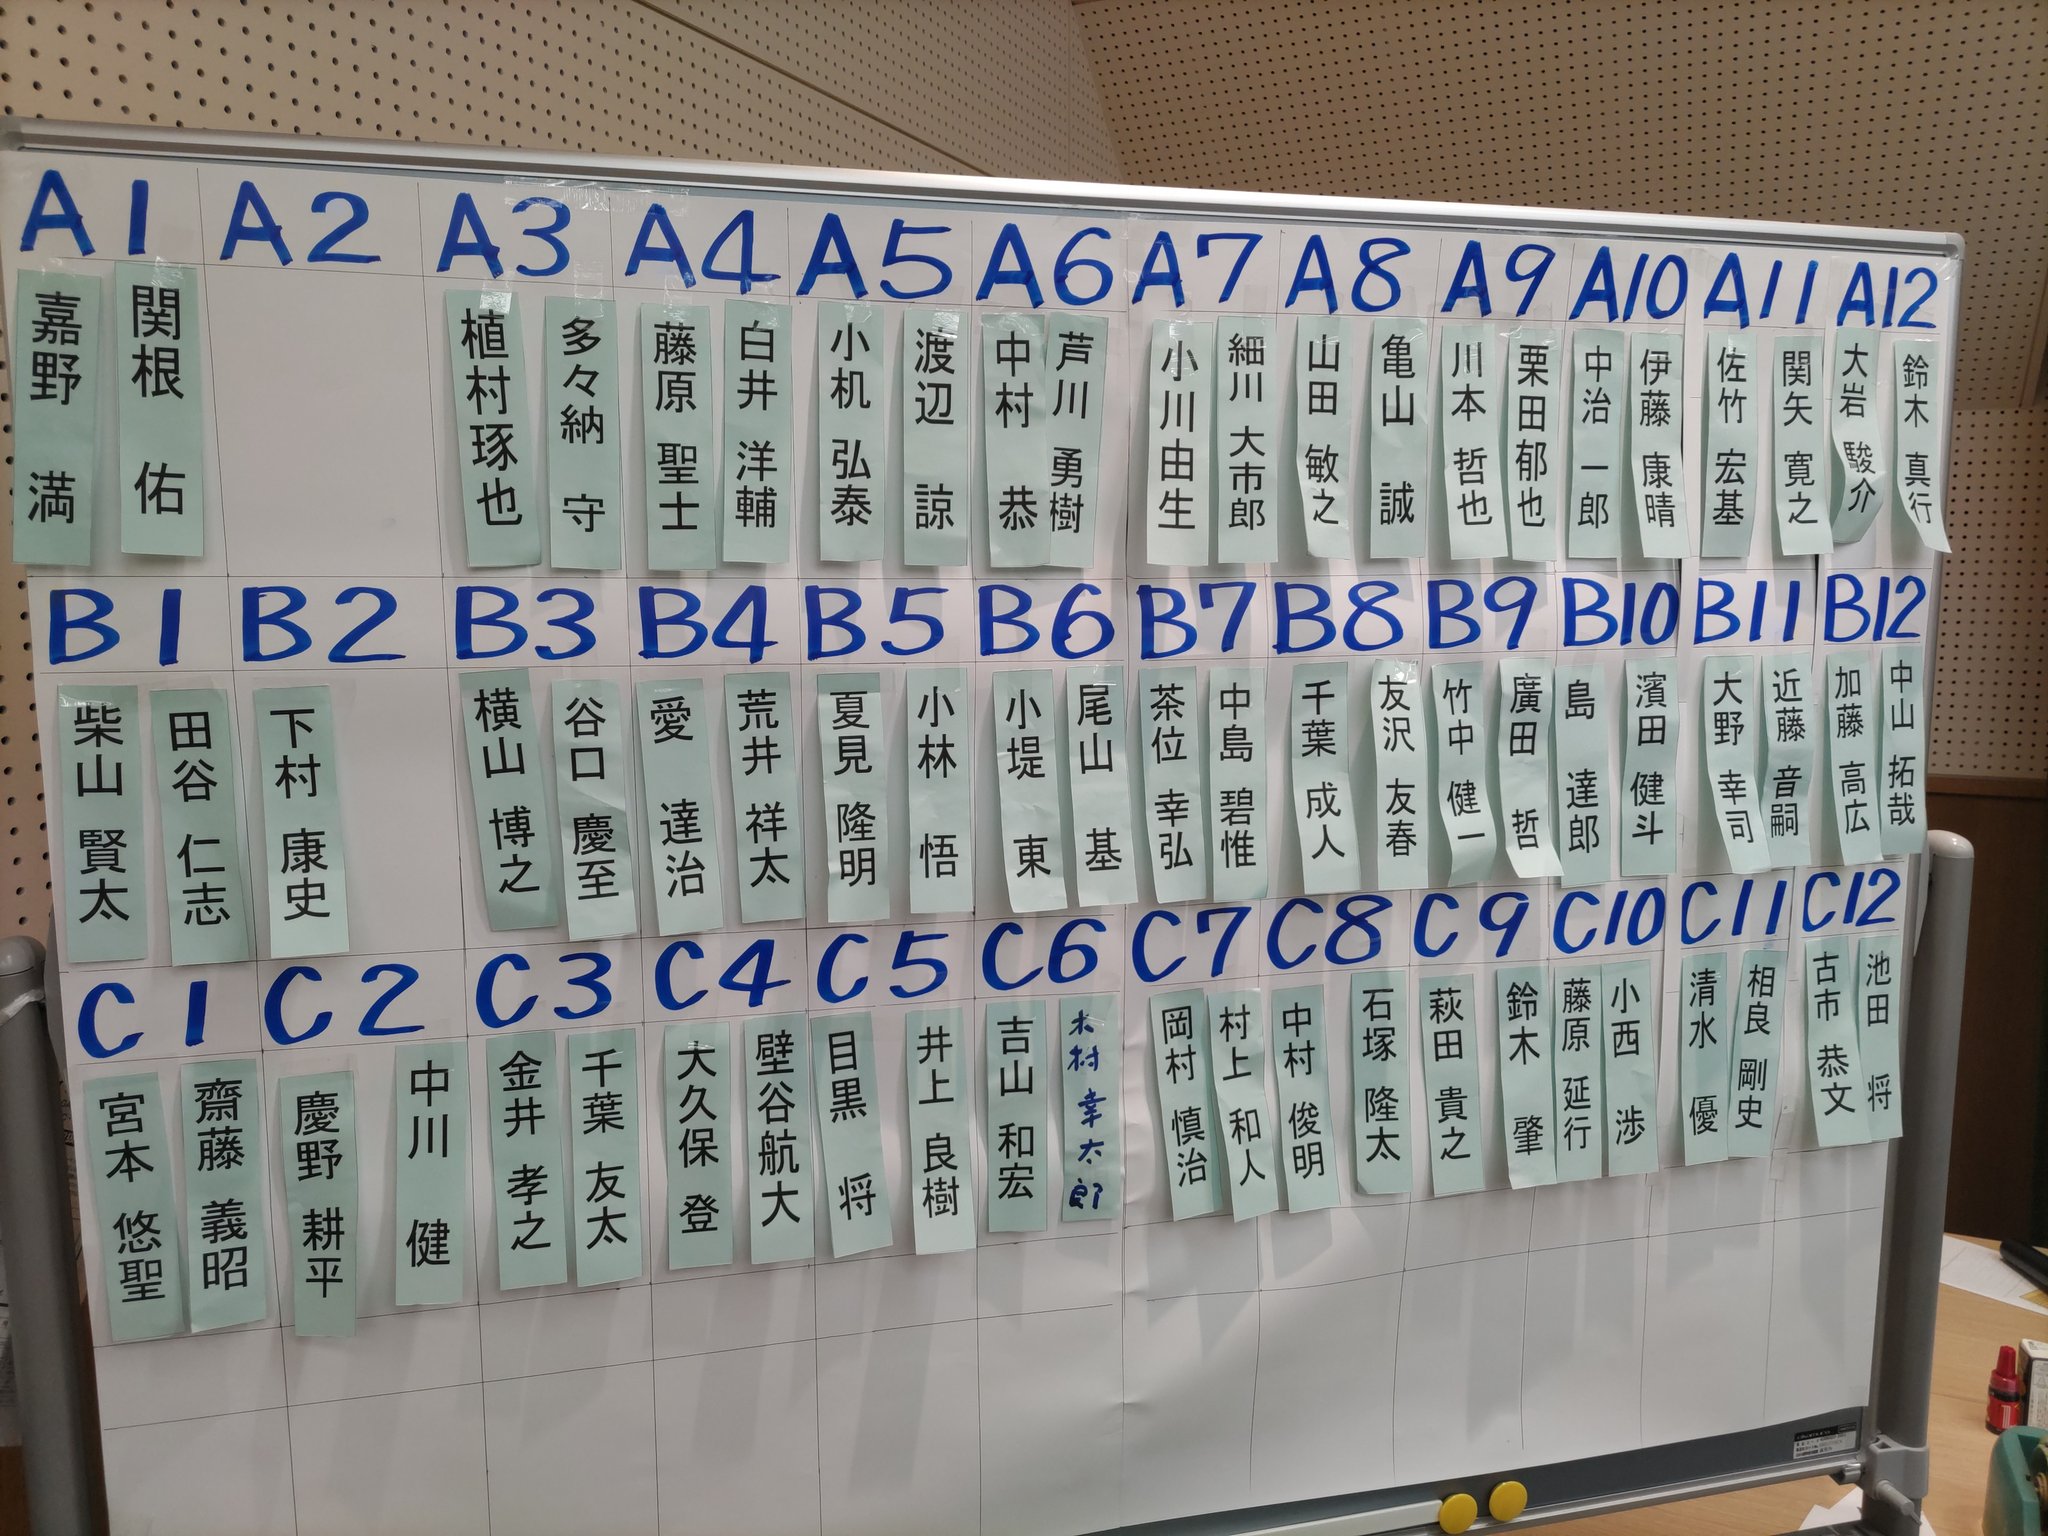 A1 A2 A3 A4 A5 A6 A7 A8 A9 A10 A11 A12
嘉野 満
関根 佑
植村琢也
多々納 守
藤原 聖士
白井 洋輔
小机 弘泰
渡辺 諒
中村 恭
芦川 勇樹
小川由生
細川 大市郎
山田 敏之
亀山 誠
川本 哲也
栗田郁也
中治 一郎
伊藤 康晴
佐竹 宏基
関矢 寛之
大岩 駿介
鈴木 真行
B1 B2 B3 B4 B5 B6 B7 B8 B9 B10 B11 B12
柴山 賢太
田谷 仁志
下村 康史
横山 博之
谷口 慶至
愛 達治
荒井 祥太
夏見 隆明
小林 悟
小堤 東
尾山 基
茶位 幸弘
中島 碧惟
千葉 成人
友沢 友春
竹中 健一
廣田 哲
島 達郎
濱田 健斗
大野 幸司
近藤 音嗣
加藤 高広
中山 拓哉
C1 C2 C3 C4 C5 C6 C7 C8 C9 C10 C11 C12
宮本 悠聖
齋藤 義昭
慶野 耕平
中川 健
金井 孝之
千葉 友太
大久保 登
壁谷航大
目黒 将
井上 良樹
吉山 和宏
木村 幸太郎
岡村 慎治
村上 和人
中村 俊明
石塚 隆太
萩田 貴之
鈴木 肇
藤原 延行
小西 渉
清水 優
相良 剛史
古市 恭文
池田 将